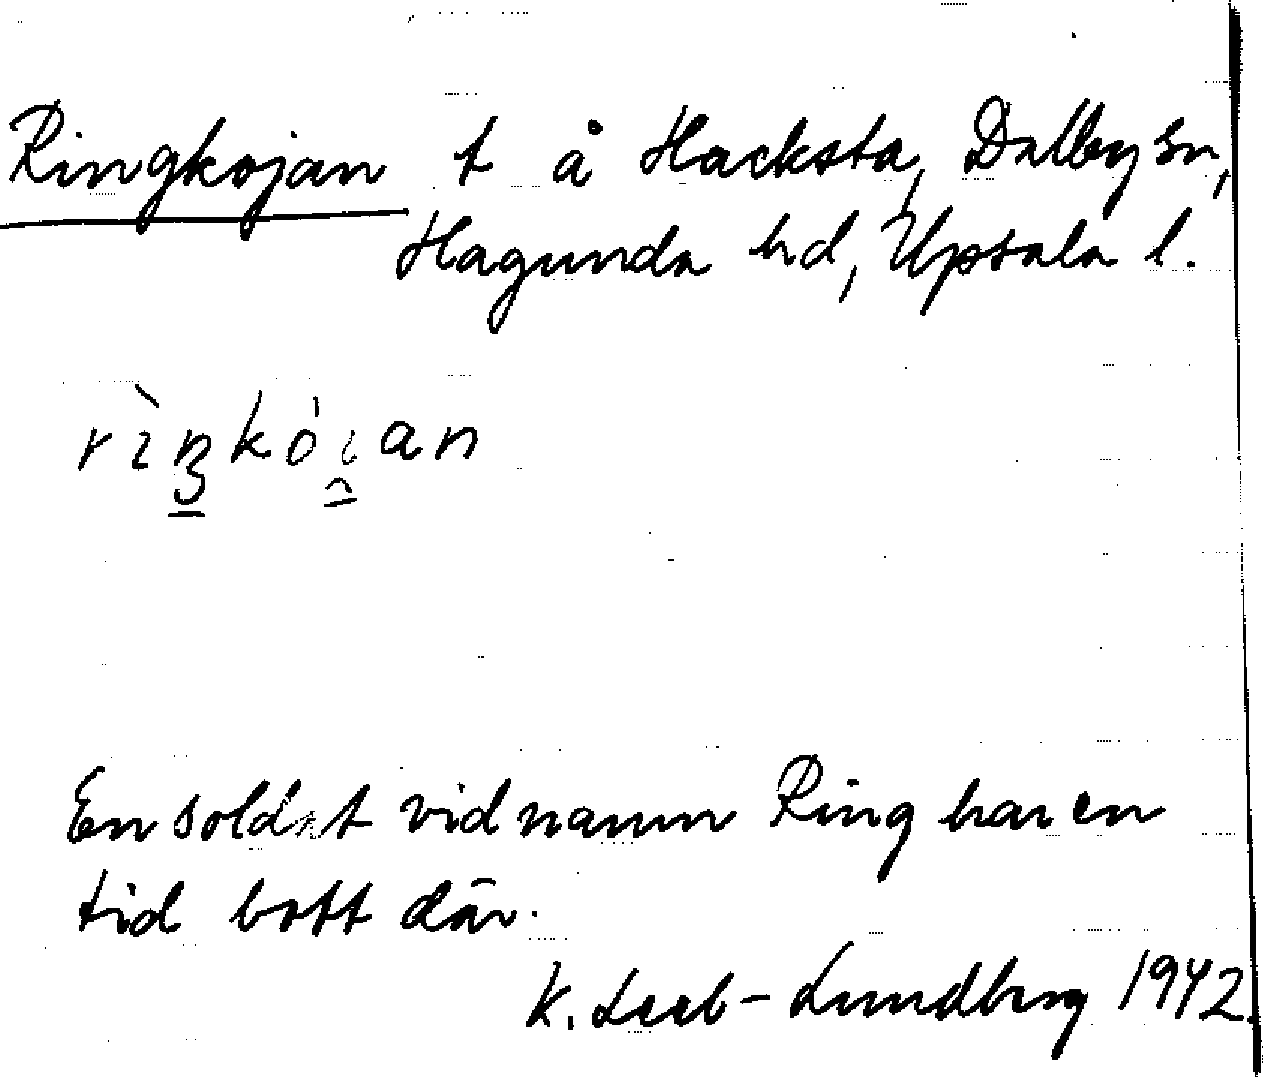 Ringkojan t å Hacksta, Dalby sn,
Hagunda hd, Upsala l.
rìŋkói̯an
En soldat vid namn Ring har en
tid bott där.
K. Leeb-Lundberg 1942.